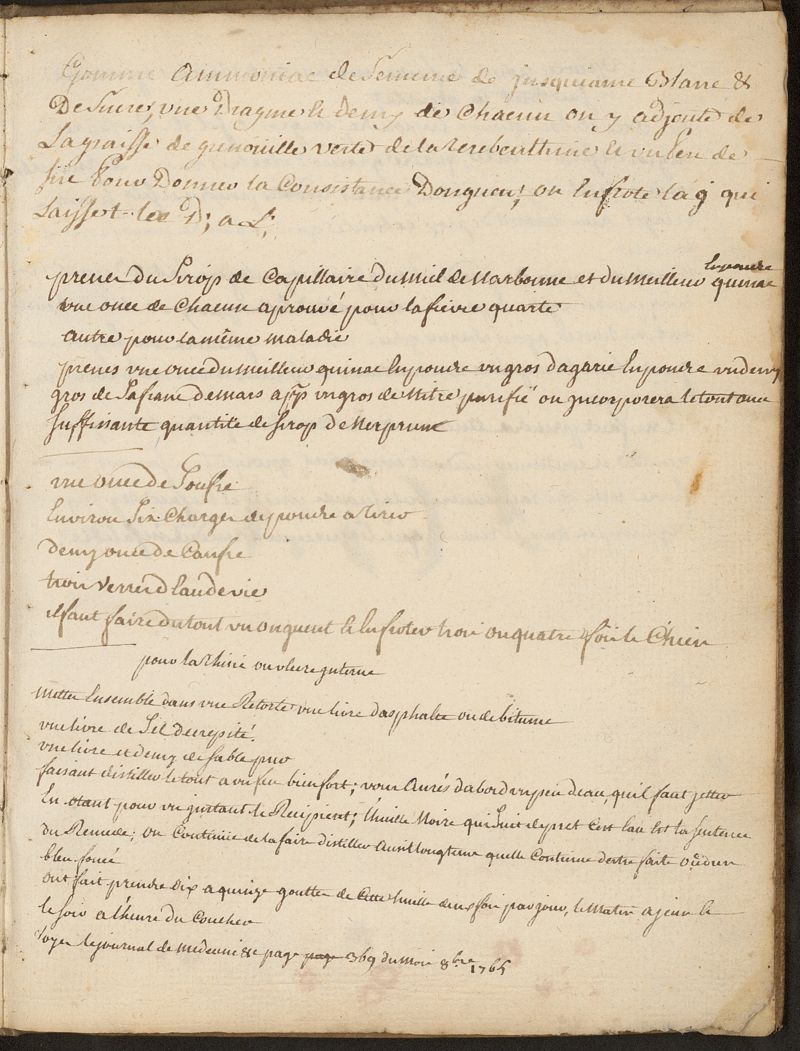 Gomme Ammoniac de Semence de jusquiame Blanc &
De Sucre, une Dragme & demy de Chacun on y adjoute de
La graisse de grenouille verte de la Terebenthine & un peu de
Sire pour Donner la Consistance Donguen; on En frote la g qui
Laisset les D; a L;
prenes du Sirop de Capillaire du Miel de Narbonne et du Meilleur quinac En poudre
une once de Chacun aprouvé pour la fievre quarte
autre pour la même maladie
prenes une once du meilleur quinac En poudre un gros dagaric En poudre un demy
gros de Safrane de mars un gros de Nitre purifié on yncorporera le tout avec
Suffisante quantite de Sirop de Nerprun
une once de Soufre
Environ Six Charges de poudre a tirer
demy once de Canfre
trois verres d'eau de vie
il faut faire du tout un onguent & En froter trois ou quatre fois le Chien
pour la Phtisie ou ulcere ynterne
mettes Ensemble dans une Retorte une livre dasphalte ou de bitume
une livre de Sel decrepité.
une livre et demy de Sable pur
faisant distiller le tout a un feu bien fort; vous Aurés dabord un peu deau, quil faut jetter
En otant pour un ynstant le Recipient; l'huille Noire qui Suit de pret Cest eau Est la
du Remede; on Continue de la faire distiller Aussi longtems quelle Continue destre forte
bleu foncé
ont fait prendre dix a quinze goutter de Cette huille deux fois par jour, le Matin a jeun &
le soir a l'heure du Coucher
Voyer le journal de medecine page page 369 du Mois 8bre 1765